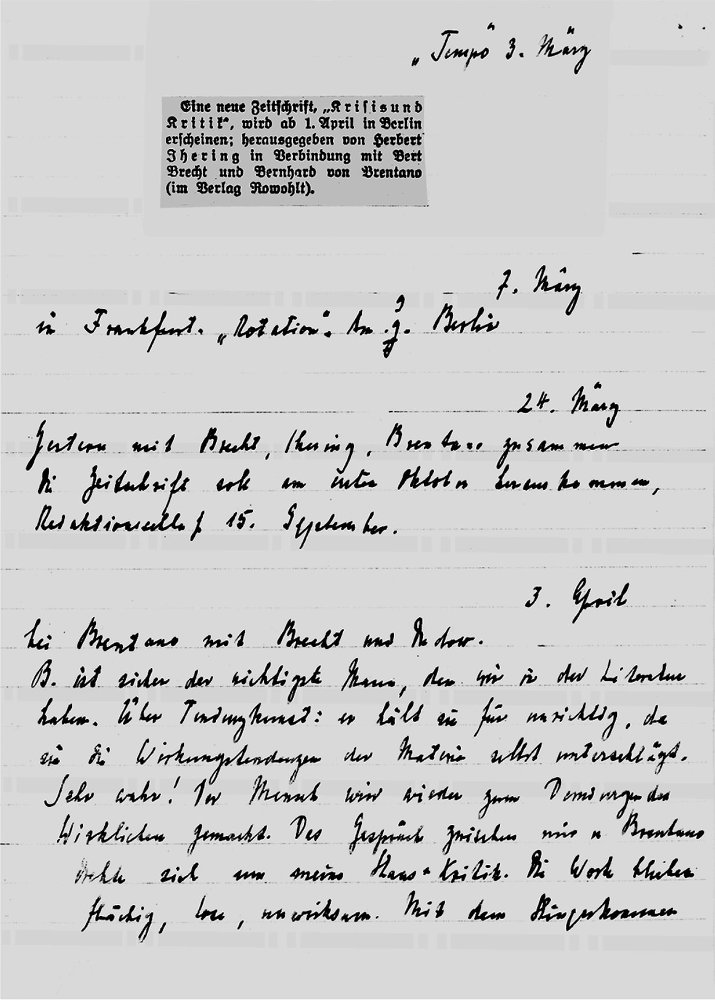 „Tempo“ 3. März
Eine neue Zeitschrift, „Krisis und
Kritik“, wird ab 1. April in Berlin
erscheinen; herausgegeben von Herbert
Ihering in Verbindung mit Bert
Brecht und Bernhard von Brentano
(im Verlag Rowohlt).
7. März
in Frankfurt. „Rotation“. Am 9. Berlin
24. März
Gestern mit Brecht, Ihering, Brentano zusammen
die Zeitschrift soll am ersten Oktober herauskommen,
Redaktionsschluß 15. September.
3. April
bei Brentano mit Brecht und
B. ist sicher der wichtigste Mann, den wir in der Literatur
haben. Über Tendenzkunst: er hält sie für unrichtig, da
sie die Wirkungstendenzen der Materie selbst unterschlägt.
Sehr wahr! Der Mensch wird wieder zum Demiurgen des
Wirklichen gemacht. Das Gespräch zwischen mir u Brentano
drehte sich um meine Haas-Kritik. Die Worte blieben
flüchtig, lose, unwirksam. Mit dem